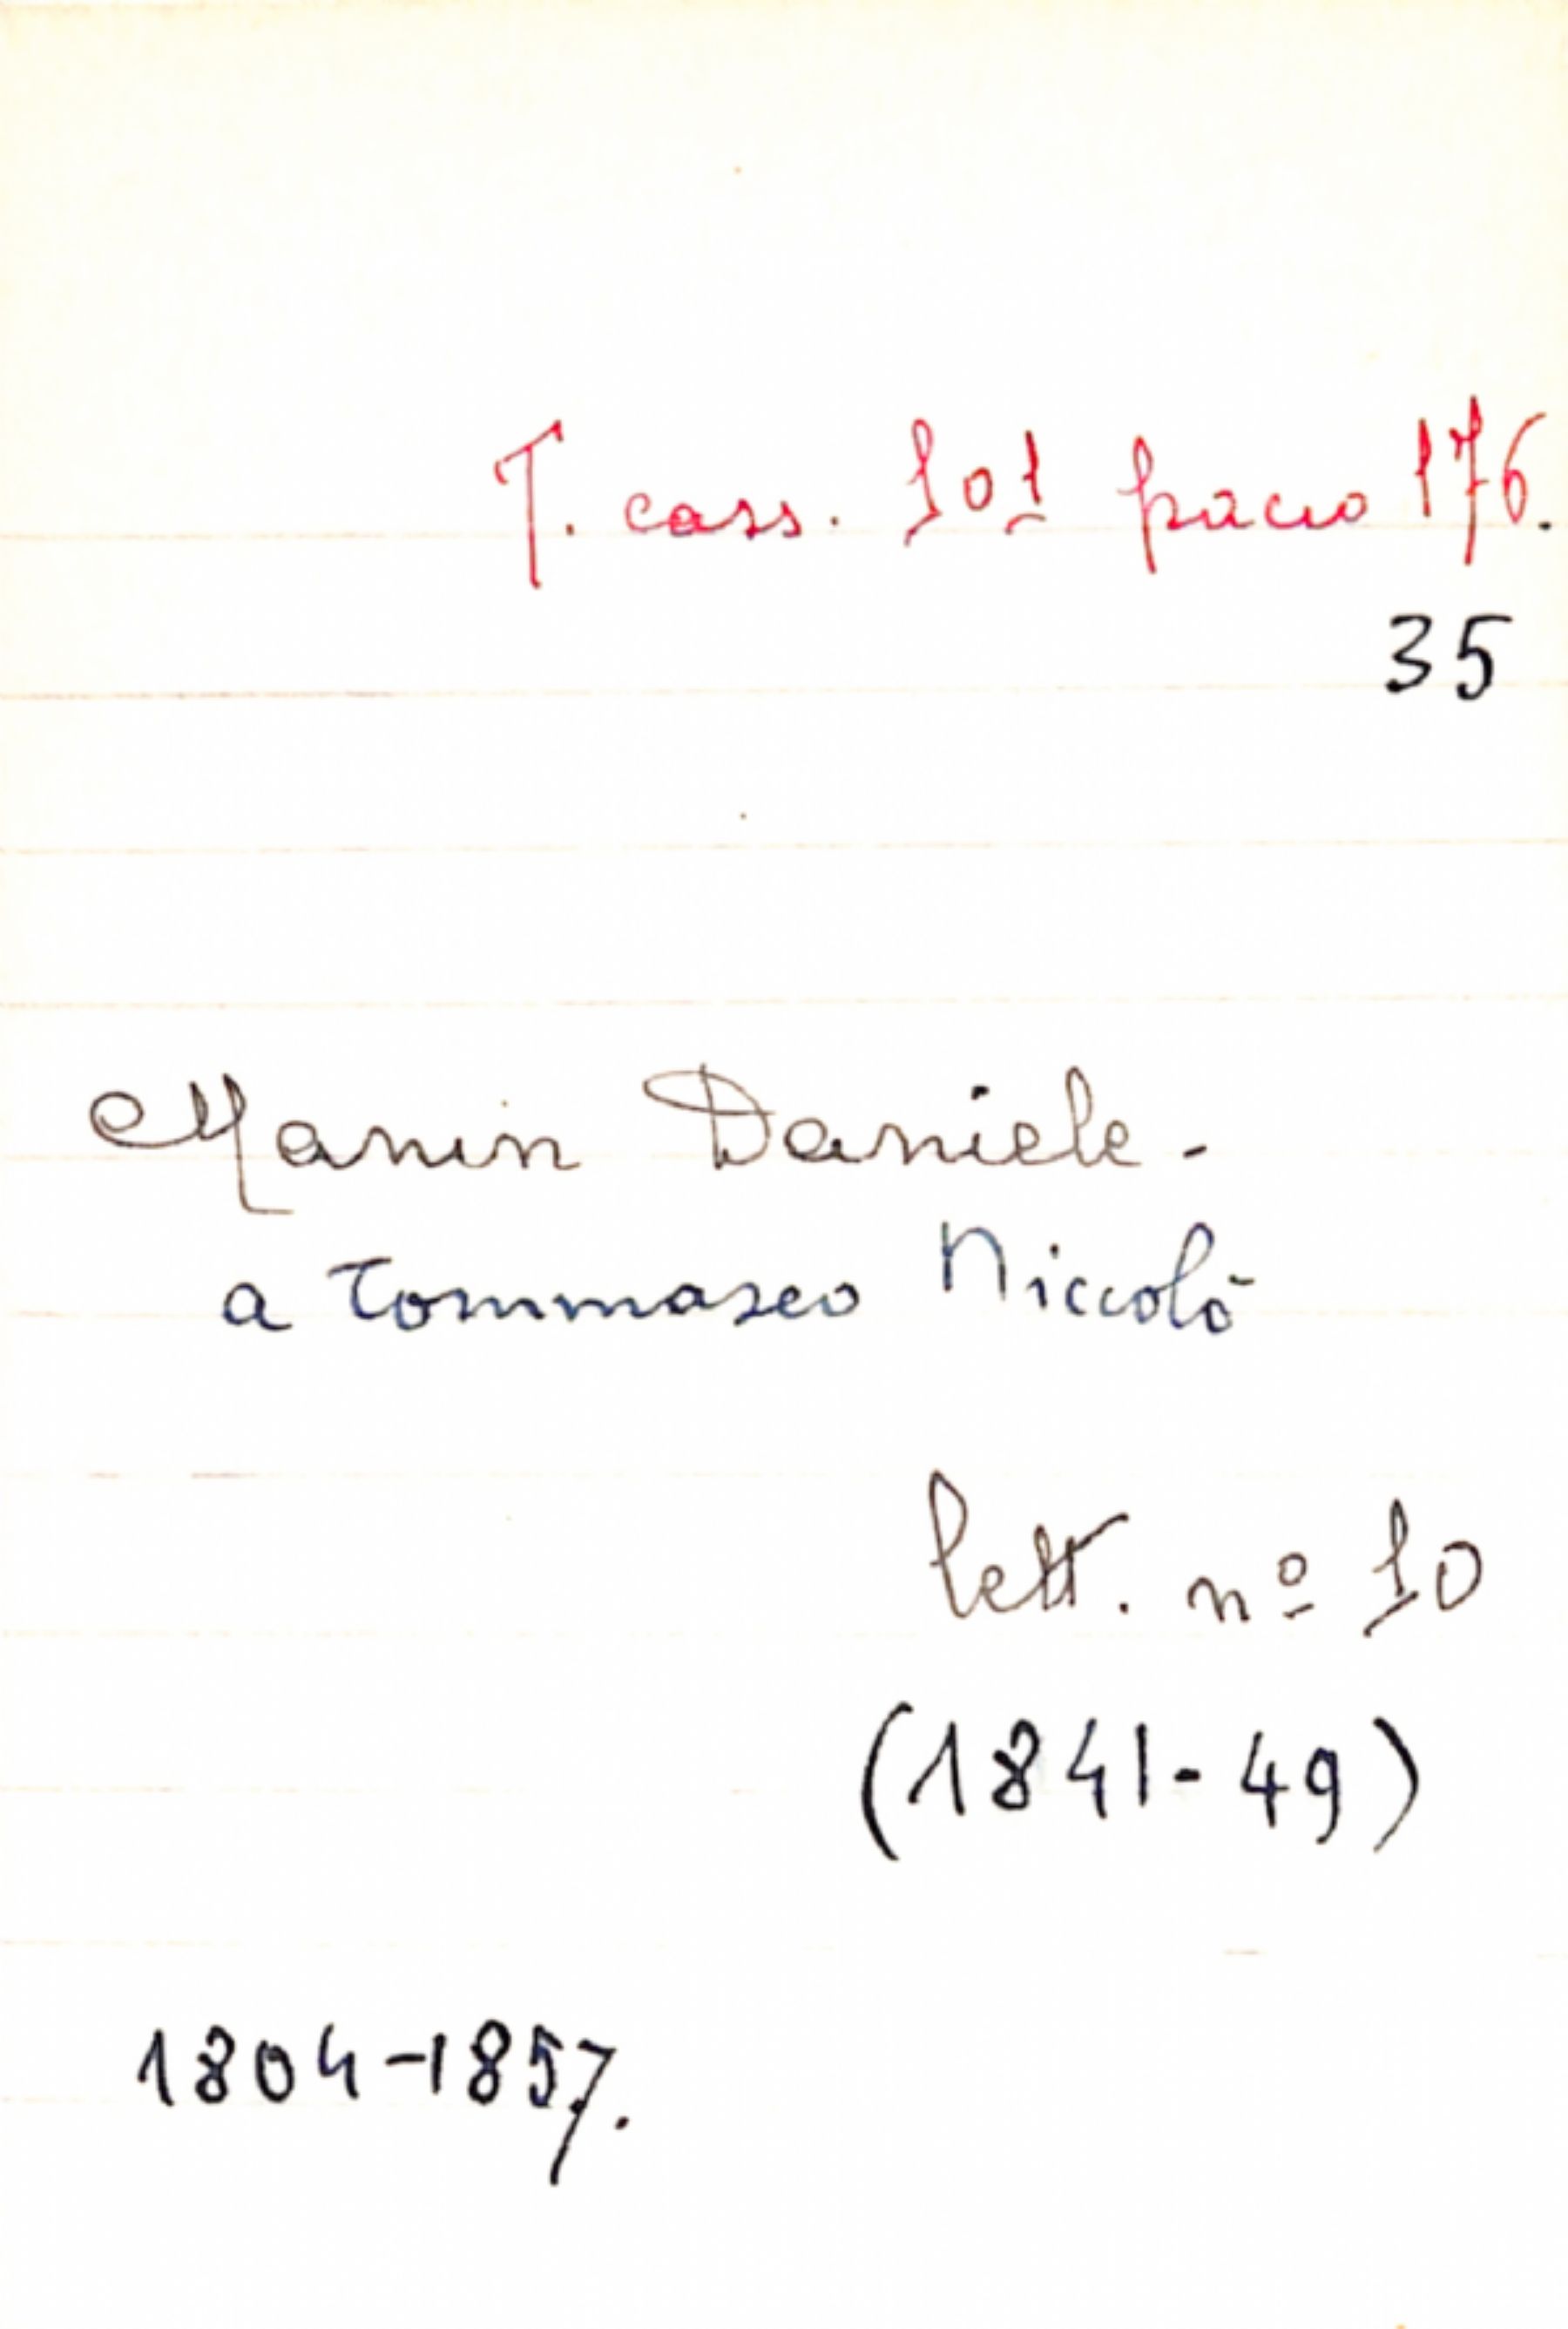 T. cass. 101 pacco 176.
35
Manin Daniele -
a Tommaseo Niccolò
lett. nº 10
(1841-49)
1804-1857.